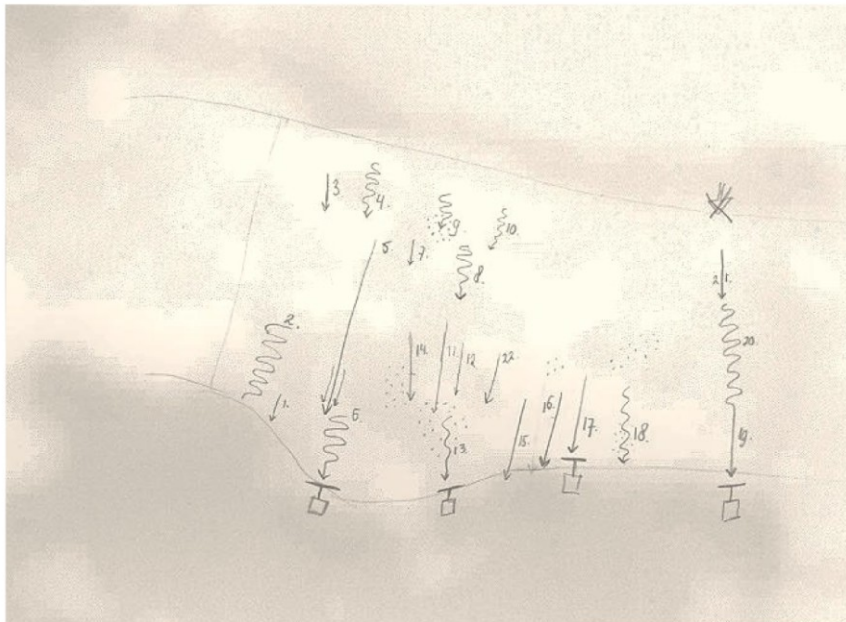 3.
4.
9.
10.
5.
7.
8.
2 1.
2.
20.
14.
11.
12.
22.
1.
6.
13.
15.
16.
17.
18.
19.